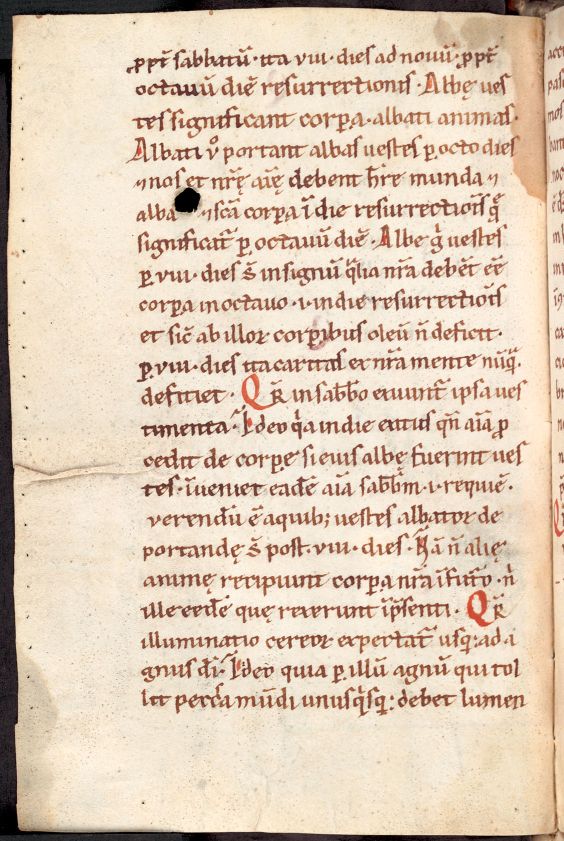 ꝓpt̄ sabbatū · ita viii · dies ad novū · ꝓpt̄
octauū diē resurrectionis · Albę ues
tes significant corꝑa · albati animas ·
Albati v̊ portant albas uestes ꝑ octo dies
nos et nr̄ę aīę debent hr̄e munda
alba sc̄a corꝑa ī die resurrectiōis q̄
significat̄ ꝑ octauū diē · Albe g̊ uestes
ꝑ viii · dies s̄t insignū q̇lia nr̄a debēt eē
corꝑa in octauo · i · in die resurrectiōis
et sic̄ ab illoꝝ corꝑibus oleū n̄ deficit ·
ꝑ viii · dies ita caritas ex nr̄a mente nūq̇
deficiet · Qr̄ in sabb̄o exuunt̄ ipsa ues
timenta · Ideo q̇a in die exitus qn̄ aīa ꝓ
cedit de corꝑe si eius albę fuerint ues
tes · īueniet eadē aīa sabb̄m · i · requiē ·
verendū ē a quibꝫ uestes albatoꝝ de
portandę s̄t post · viii · dies · Nā n̄ alię
animę recipiunt corꝑa nr̄a ī fut̄o · n̄
ille eędē quę rexerunt ī p̄senti · Qr̄
illuminatio cereoꝝ expectat̄ usqꝫ ad a
gnus dī · Ideo quia ꝑ illū agnū qui tol
lit peccā mūdi unusq̇sqꝫ debet lumen